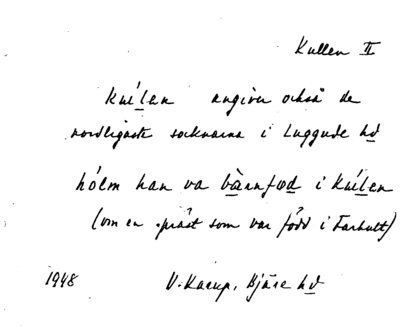 Kullen II
kuílen angiver också de
nordligaste socknarna i Luggude hd
hólm han va bànnfœd i kuílen
(om en präst som var född i Farhult)
1948 V. Karup, Bjäre hd